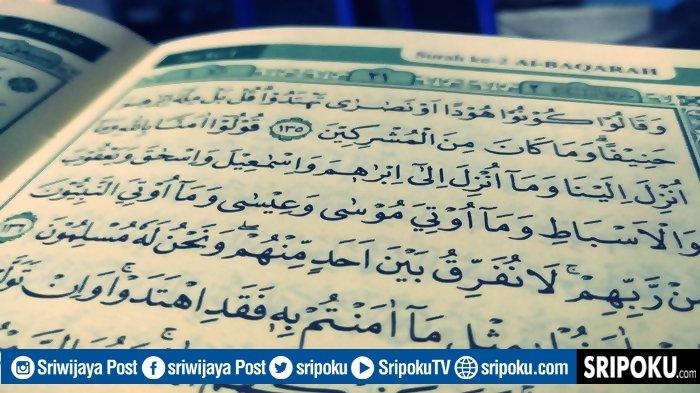 Surah ke-2 AL-BAQARAH
٢١
وَقَالُوْا كُوْنُوْا هُوْدًا اَوْ نَصٰرٰى تَهْتَدُوْا قُلْ بَلْ مِلَّةَ اِبْرٰهٖمَ
حَنِيْفًا وَمَا كَانَ مِنَ الْمُشْرِكِيْنَ ١٣٥ قُوْلُوْٓا اٰمَنَّا بِاللّٰهِ وَمَآ
اُنْزِلَ اِلَيْنَا وَمَآ اُنْزِلَ اِلٰٓى اِبْرٰهٖمَ وَاِسْمٰعِيْلَ وَاِسْحٰقَ وَيَعْقُوْبَ
وَالْاَسْبَاطِ وَمَآ اُوْتِيَ مُوْسٰى وَعِيْسٰى وَمَآ اُوْتِيَ النَّبِيُّوْنَ
مِنْ رَّبِّهِمْ لَا نُفَرِّقُ بَيْنَ اَحَدٍ مِّنْهُمْ وَنَحْنُ لَهٗ مُسْلِمُوْنَ ١٣٦
مَآ اٰمَنْتُمْ بِهٖ فَقَدِ اهْتَدَوْا وَاِنْ تَوَلَّوْا
Sriwijaya Post sriwijaya Post sripoku SripokuTV sripoku.com SRIPOKU.com